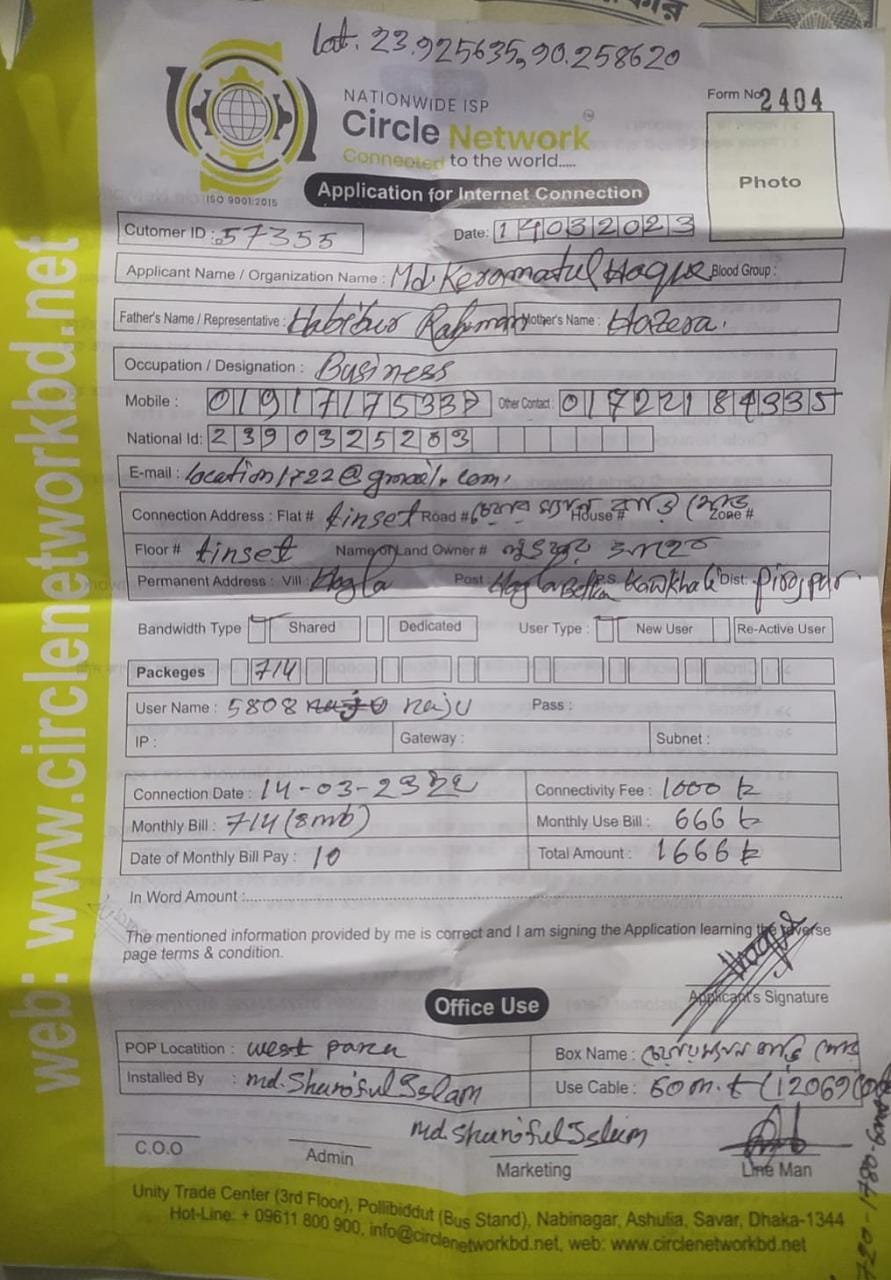 lat. 23.925635, 90.258620
NATIONWIDE ISP
Circle Network
Connected to the world.....
ISO 9001:2015
Form No 2404
Photo
Application for Internet Connection
Cutomer ID : 57355 Date: 14032023
Applicant Name / Organization Name : Md. Keramatul Haque Blood Group :
Father's Name / Representative : Habibur Rahman Mother's Name : Hazera.
Occupation / Designation : Business
Mobile : 0191717533 Other Contact : 01722184335
National Id: 2390325203
E-mail : location1722@gmail.com.
Connection Address : Flat # tinset Road # House # Zone #
Floor # tinset Name of Land Owner #
Permanent Address : Vill : Hogla Post : Hogla Betka P.S. Kawkhali Dist: Pirojpur
Bandwidth Type Shared Dedicated User Type : New User Re-Active User
Packeges 714
User Name : 5808 raju Pass :
IP : Gateway : Subnet :
Connection Date : 14-03-23 Connectivity Fee : 1000 tk
Monthly Bill : 714 (8mb) Monthly Use Bill : 666 tk
Date of Monthly Bill Pay : 10 Total Amount : 1666 tk
In Word Amount :
The mentioned information provided by me is correct and I am signing the Application learning the reverse
page terms & condition.
Haque
Applicant's Signature
Office Use
POP Locatition : west para Box Name :
Installed By : md. Shariful Islam Use Cable : 60 m.t
md. Shariful Islam
C.O.O Admin Marketing Line Man
Unity Trade Center (3rd Floor), Pollibiddut (Bus Stand), Nabinagar, Ashulia, Savar, Dhaka-1344
Hot-Line: + 09611 800 900, info@circlenetworkbd.net, web: www.circlenetworkbd.net
web: www.circlenetworkbd.net